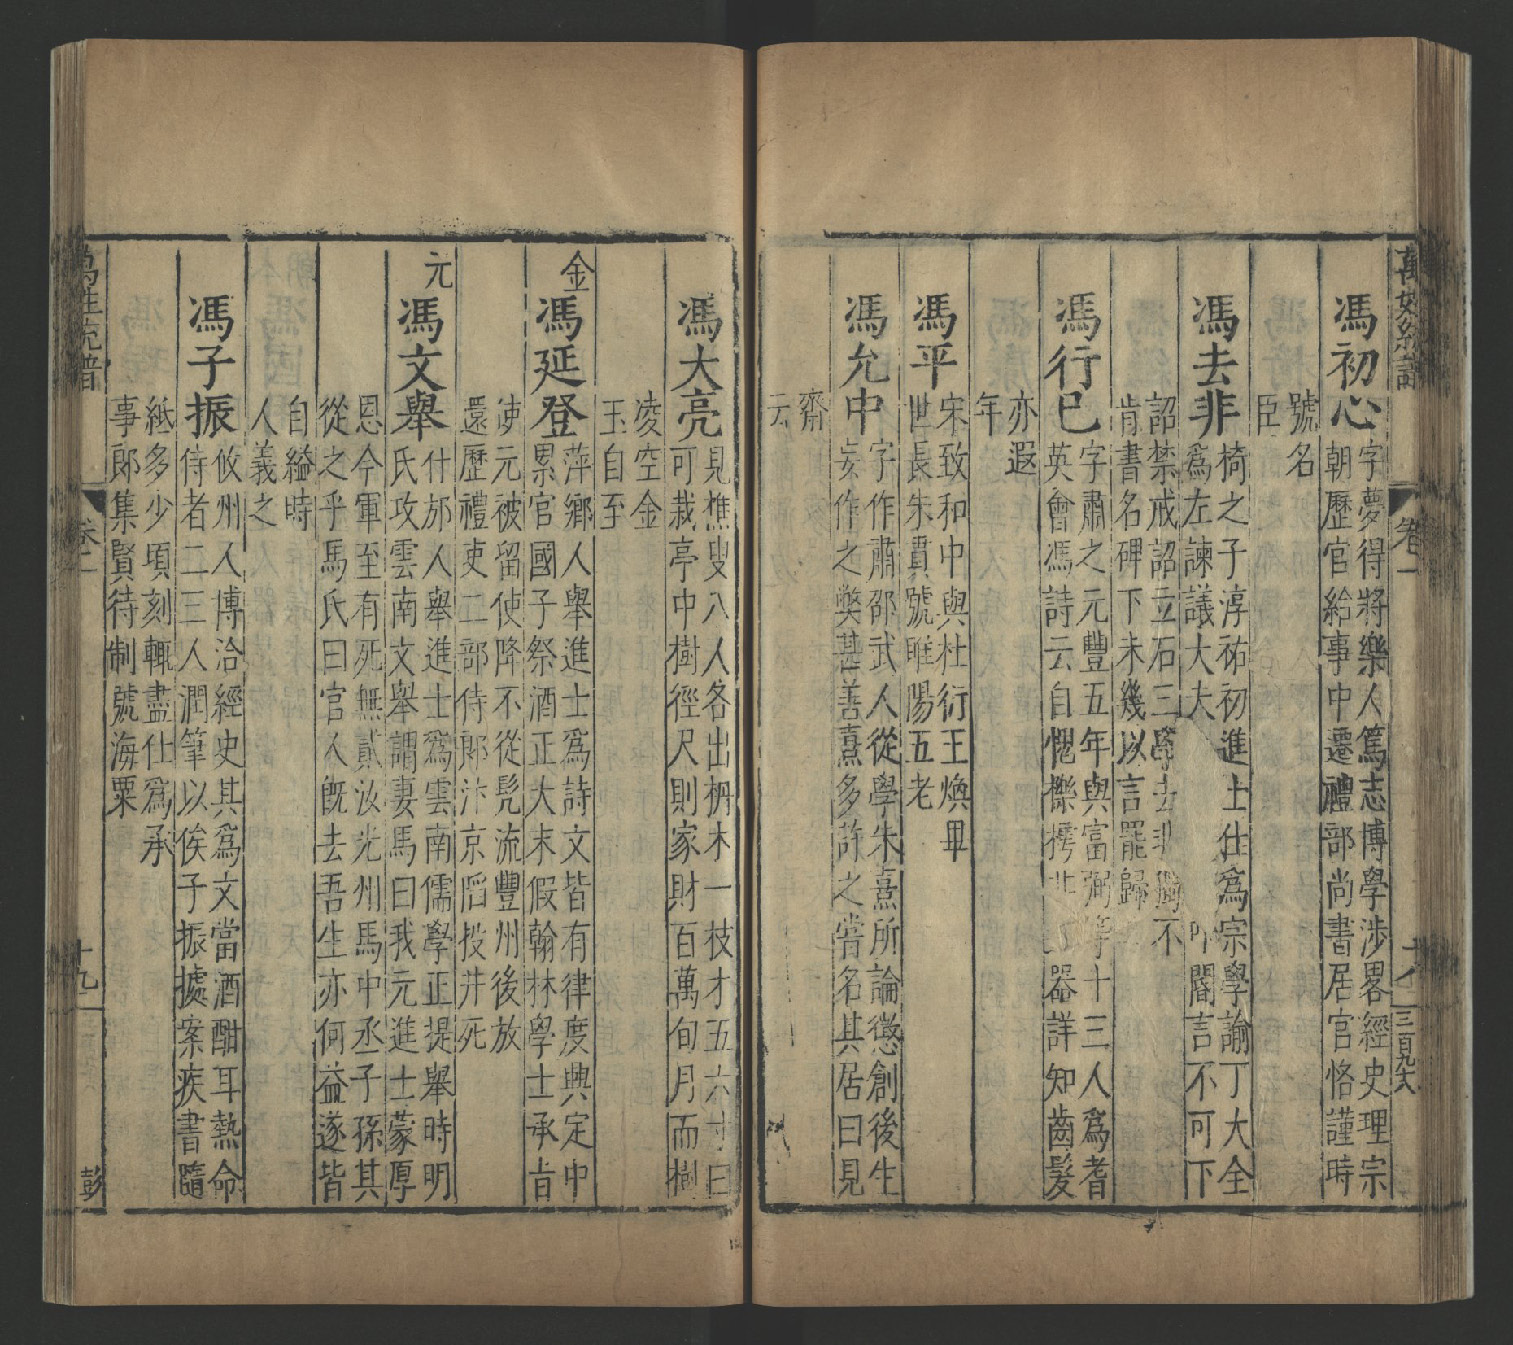 萬姓統譜 卷一
馮初心
字夢得將樂人篤志博學涉畧經史理宗
朝歷官給事中遷禮部尚書居官恪謹時
號名
臣
馮去非
椅之子淳祐初進士仕爲宗學諭丁大全
爲左諫議大夫 閽言不可下
詔禁戒詔立石三學去非獨不
肯書名碑下未幾以言罷歸
馮行已
字肅之元豐五年與富弼等十三人爲耆
英會馮詩云自愧櫟樗 器詳知齒髮
亦遐
年
馮平
宋致和中與杜衍王煥畢
世長朱貫號睢陽五老
馮允中
字作肅邵武人從學朱熹所論懲創後生
妄作之獘甚善熹多許之嘗名其居曰見
齋
云
馮大亮
見樵叟八人各出柟木一枝才五六寸曰
可栽亭中樹徑尺則家財百萬旬月而樹
凌空金
玉自至
金
馮延登
萍鄉人舉進士爲詩文皆有律度興定中
累官國子祭酒正大末假翰林學士承旨
使元被留使降不從髡流豐州後放
還歷禮吏二部侍郎汴京陷投井死
元
馮文舉
什邡人舉進士爲雲南儒學正提舉時明
氏攻雲南文舉謂妻馬曰我元進士蒙厚
恩今軍至有死無貳汝光州馬中丞子孫其
從之乎馬氏曰官人旣去吾生亦何益遂皆
自縊時
人義之
馮子振
攸州人博洽經史其爲文當酒酣耳熱命
侍者二三人潤筆以俟子振據案疾書隨
紙多少頃刻輒盡仕爲承
事郎集賢待制號海粟
萬姓統譜 卷一 十九 彭